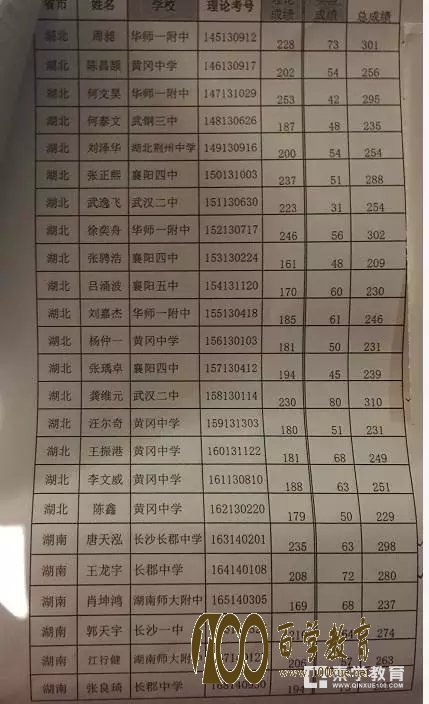 省市 姓名 学校 理论考号 理论成绩 成绩 总成绩
湖北 周昶 华师一附中 145130912 228 73 301
湖北 陈昌颐 黄冈中学 146130917 202 54 256
湖北 何文昊 华师一附中 147131029 253 42 295
湖北 何泰文 武钢三中 148130626 187 48 235
湖北 刘泽华 湖北荆州中学 149130916 200 54 254
湖北 张正熙 襄阳四中 150131003 237 51 288
湖北 武逸飞 武汉二中 151130630 223 31 254
湖北 徐奕舟 华师一附中 152130717 246 56 302
湖北 张骋浩 襄阳四中 153130224 161 48 209
湖北 吕涌波 襄阳五中 154131120 170 60 230
湖北 刘嘉杰 华师一附中 155130418 185 61 246
湖北 杨仲一 黄冈中学 156130103 181 50 231
湖北 张瑀卓 襄阳四中 157130412 194 45 239
湖北 龚维元 武汉二中 158130114 230 80 310
湖北 汪尔奇 黄冈中学 159131303 180 51 231
湖北 王振港 黄冈中学 160131122 181 68 249
湖北 李文威 黄冈中学 161130810 188 63 251
湖北 陈鑫 黄冈中学 162130220 179 50 229
湖南 唐天泓 长沙长郡中学 163140201 235 63 298
湖南 王龙宇 长郡中学 164140108 208 72 280
湖南 肖坤鸿 湖南师大附中 165140305 169 68 237
湖南 郭天宇 长沙一中 274
湖南 江行健 湖南师大附中 206 57 263
湖南 张良琦 长郡中学 194
100 百学教育
www.100xue.net
亲学教育
WWW.QINXUE100.COM